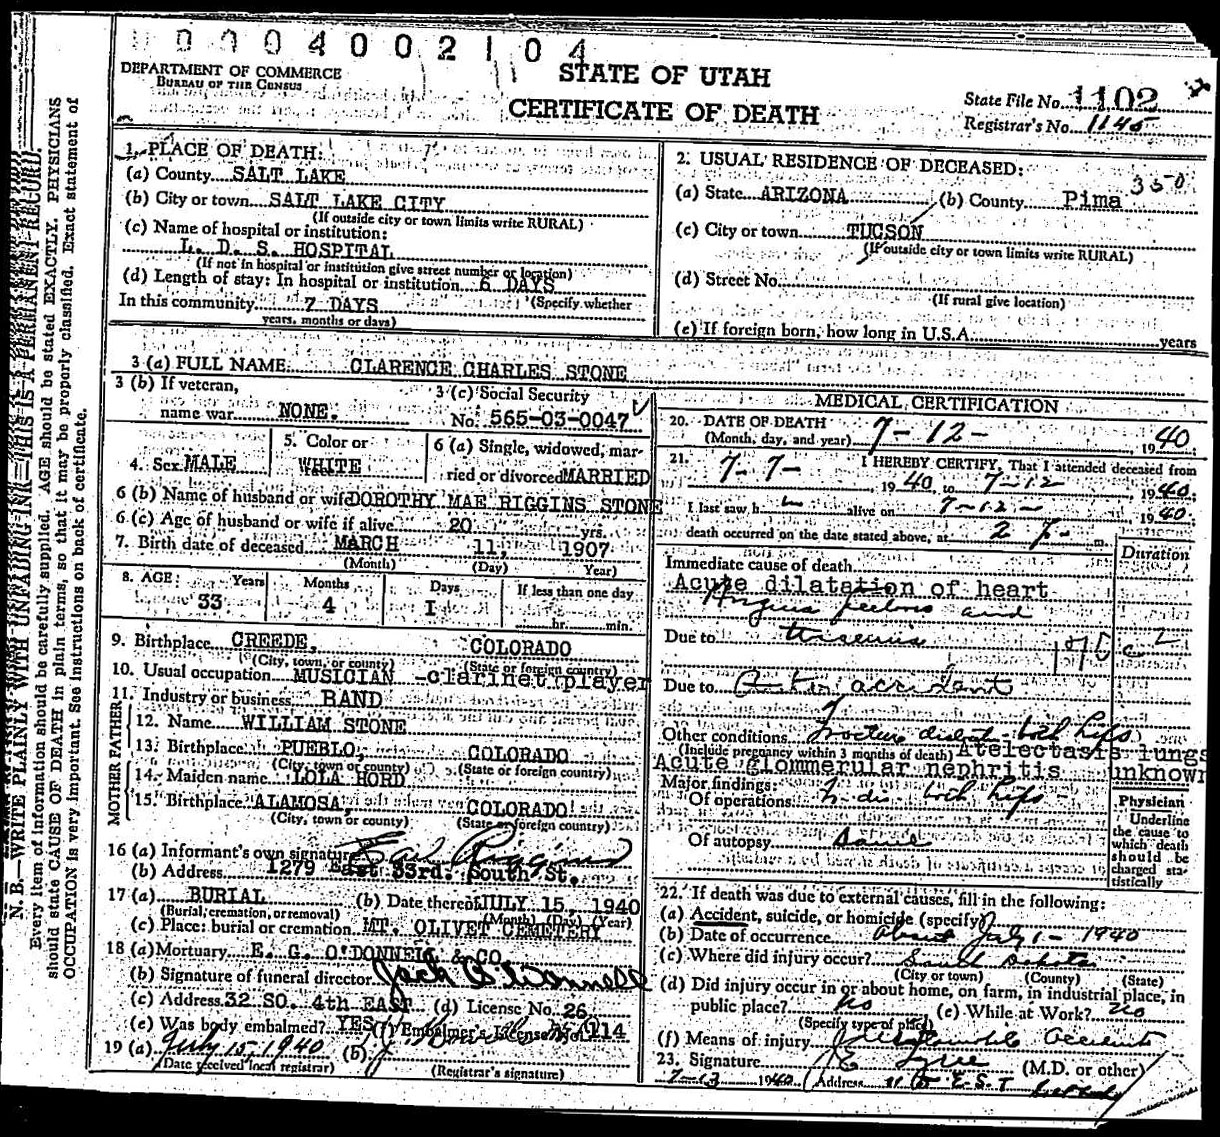 0004002104
DEPARTMENT OF COMMERCE
BUREAU OF THE CENSUS
STATE OF UTAH
CERTIFICATE OF DEATH
State File No. 1102
Registrar's No. 1145
N. B.—WRITE PLAINLY WITH UNFADING INK—THIS IS A PERMANENT RECORD.
Every item of information should be carefully supplied. AGE should be stated EXACTLY. PHYSICIANS
should state CAUSE OF DEATH in plain terms, so that it may be properly classified. Exact statement of
OCCUPATION is very important. See instructions on back of certificate.
1. PLACE OF DEATH:
(a) County SALT LAKE
(b) City or town SALT LAKE CITY
(If outside city or town limits write RURAL)
(c) Name of hospital or institution:
L. D. S. HOSPITAL
(If not in hospital or institution give street number or location)
(d) Length of stay: In hospital or institution 6 DAYS
In this community 7 DAYS (Specify whether
years, months or days)
2. USUAL RESIDENCE OF DECEASED:
350
(a) State ARIZONA (b) County Pima
(c) City or town TUCSON
(If outside city or town limits write RURAL)
(d) Street No.
(If rural give location)
(e) If foreign born, how long in U.S.A. years
3 (a) FULL NAME CLARENCE CHARLES STONE
3 (b) If veteran,
name war NONE.
3 (c) Social Security
No. 565-03-0047
4. Sex MALE
5. Color or
WHITE
6 (a) Single, widowed, mar-
ried or divorced MARRIED
6 (b) Name of husband or wife DOROTHY MAE RIGGINS STONE
6 (c) Age of husband or wife if alive 20 yrs.
7. Birth date of deceased MARCH 11, 1907
(Month) (Day) Year)
8. AGE: Years Months Days If less than one day
33 4 1 hr. min.
9. Birthplace CREEDE, COLORADO
(City, town, or county) (State or foreign country)
10. Usual occupation MUSICIAN -clarinet player
11. Industry or business BAND
FATHER
12. Name WILLIAM STONE
13. Birthplace PUEBLO, COLORADO
(City, town, or county) (State or foreign country)
MOTHER
14. Maiden name LOLA HORD
15. Birthplace ALAMOSA, COLORADO
(City, town or county) (State or foreign country)
16 (a) Informant's own signature Earl Riggins
(b) Address 1279 East 33rd. South St.
17 (a) BURIAL (b) Date thereof JULY 15, 1940
(Burial, cremation, or removal) (Month) (Day) (Year)
(c) Place: burial or cremation MT. OLIVET CEMETERY
18 (a) Mortuary E. G. O'DONNELL & CO.
(b) Signature of funeral director Jack O'Donnell
(c) Address 32 SO. 4th EAST (d) License No. 26
(e) Was body embalmed? YES (f) Embalmer's License No. 114
19 (a) July 15, 1940 (b)
(Date received local registrar) (Registrar's signature)
MEDICAL CERTIFICATION
20. DATE OF DEATH
(Month, day, and year) 7-12- , 1940
21. I HEREBY CERTIFY, That I attended deceased from
7-7- 1940, to 7-12 , 1940;
I last saw h alive on 7-12- 1940;
death occurred on the date stated above, at 2 P m.
Duration
Immediate cause of death
Acute dilatation of heart
and
Due to Uraemia
Due to Auto accident
Other conditions Fracture disloc both hips
(Include pregnancy within 3 months of death) Atelectasis lungs
Acute glommerular nephritis unknown
Major findings:
Of operations both hips
Of autopsy Same
Physician
Underline
the cause to
which death
should be
charged sta-
tistically
22. If death was due to external causes, fill in the following:
(a) Accident, suicide, or homicide (specify)
(b) Date of occurrence About July 1- 1940
(c) Where did injury occur? South Dakota
(City or town) (County) (State)
(d) Did injury occur in or about home, on farm, in industrial place, in
public place? No (e) While at Work? No
(Specify type of place)
(f) Means of injury Automobile Accident
23. Signature (M.D. or other)
7-13 1940 Address